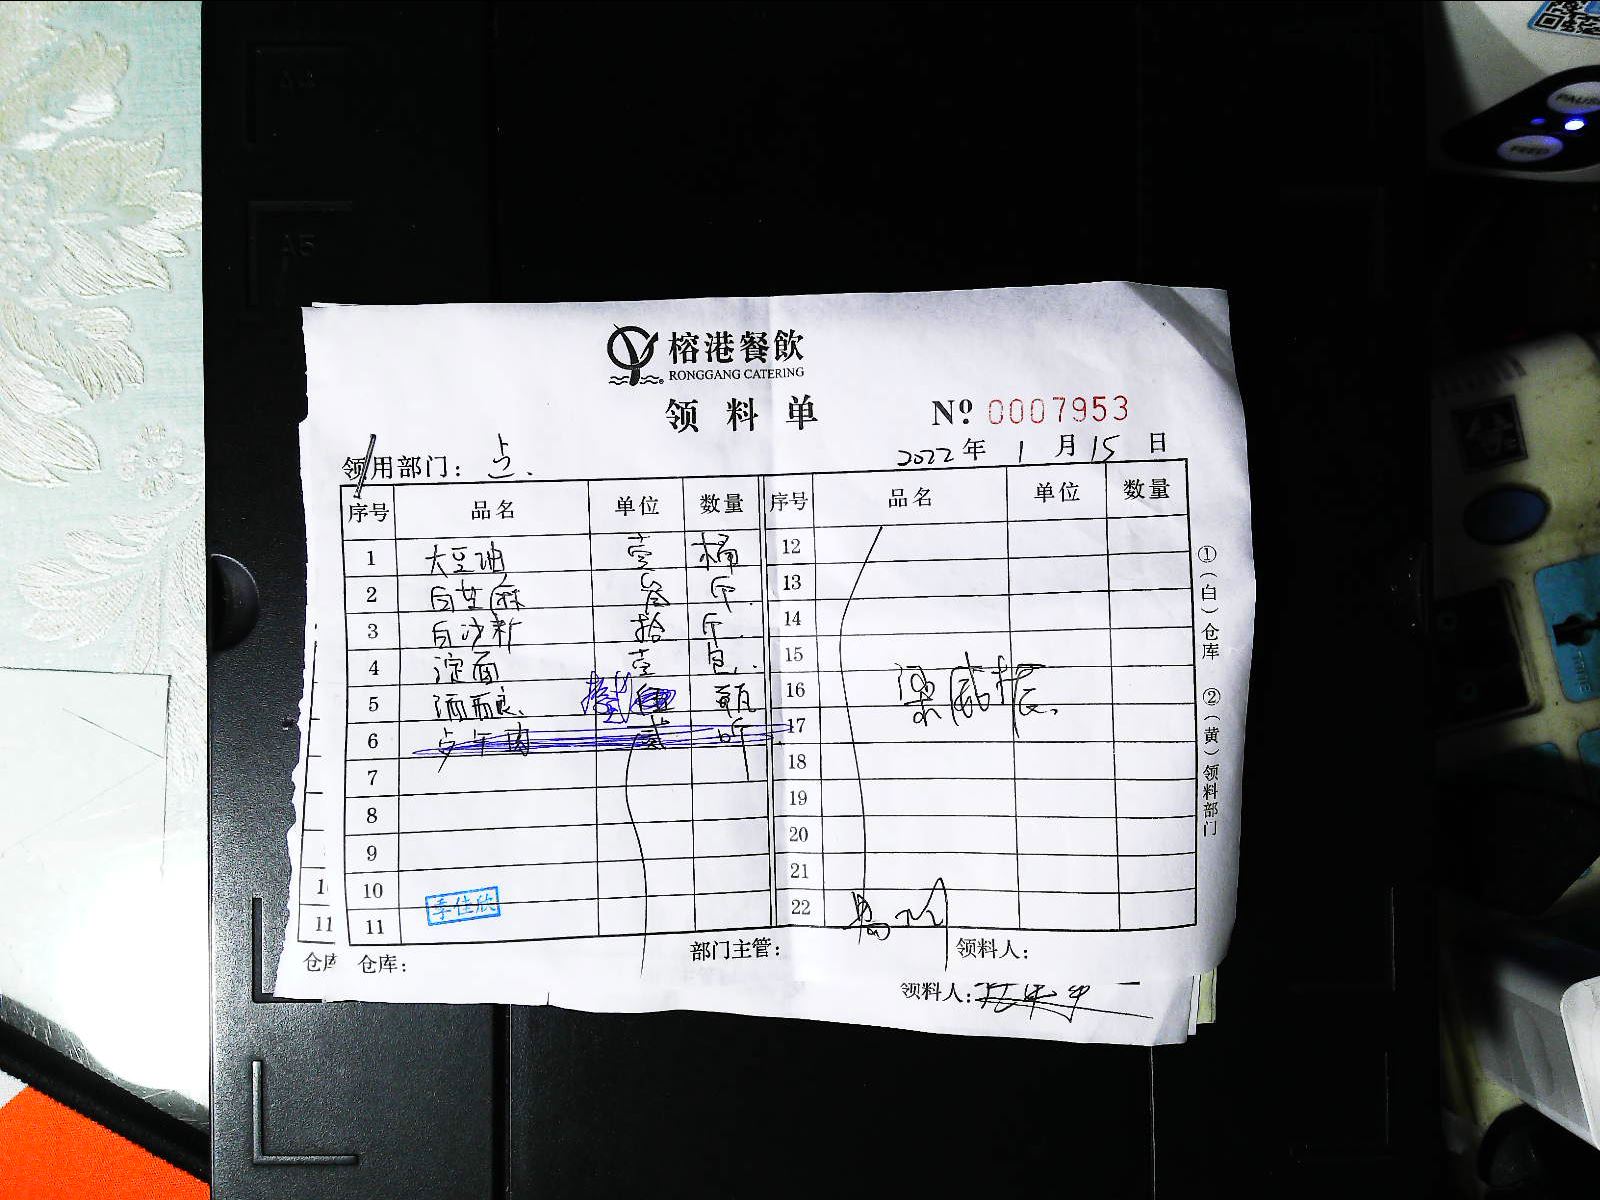 榕港餐飲
RONGGANG CATERING
领料单
№ 0007953
领用部门: 点.
2022年 1月15日
序号 品名 单位 数量 序号 品名 单位 数量
1 大豆油 壹 桶 12
2 白芝麻 斤 13
3 白沙 拾 斤 14
4 淀面 壹 包 15
5 瓶 16
6 17
7 18
8 19
9 20
10 21
11 李佳欣 22
仓库: 部门主管: 领料人:
领料人:
①(白)仓库 ②(黄)领料部门
10
11
仓库
A5
PAUSE
FEED